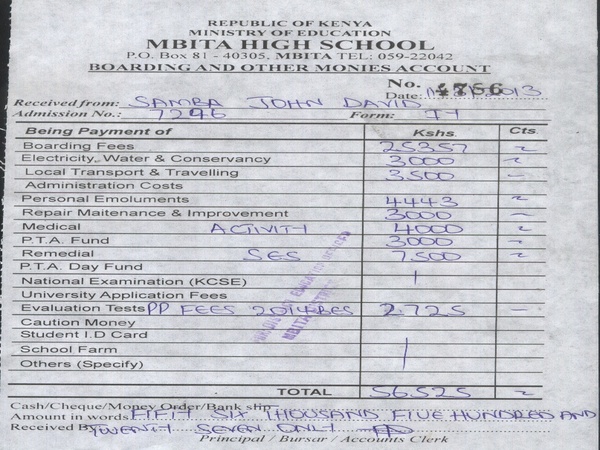 REPUBLIC OF KENYA
MINISTRY OF EDUCATION
MBITA HIGH SCHOOL
P.O. Box 81 - 40305, MBITA TEL: 059-22042
BOARDING AND OTHER MONIES ACCOUNT
No. 4756
Received from: SAMBA JOHN DAVID Date: 2013
Admission No.: 7296 Form:
Being Payment of Kshs. Cts.
Boarding Fees 25357
Electricity, Water & Conservancy 3000
Local Transport & Travelling 3500 -
Administration Costs
Personal Emoluments 4443
Repair Maitenance & Improvement 3000 -
Medical ACTIVITY 4000
P.T.A. Fund 3000
Remedial SES 7,500
P.T.A. Day Fund
National Examination (KCSE)
University Application Fees
Evaluation Tests PP FEES 2014 2,725 -
Caution Money
Student I.D Card
School Farm
Others (Specify)
TOTAL 56,525
Cash/Cheque/Money Order/Bank slip
Amount in words FIFTY SIX THOUSAND FIVE HUNDRED AND
Received By TWENTY SEVEN ONLY
Principal / Bursar / Accounts Clerk